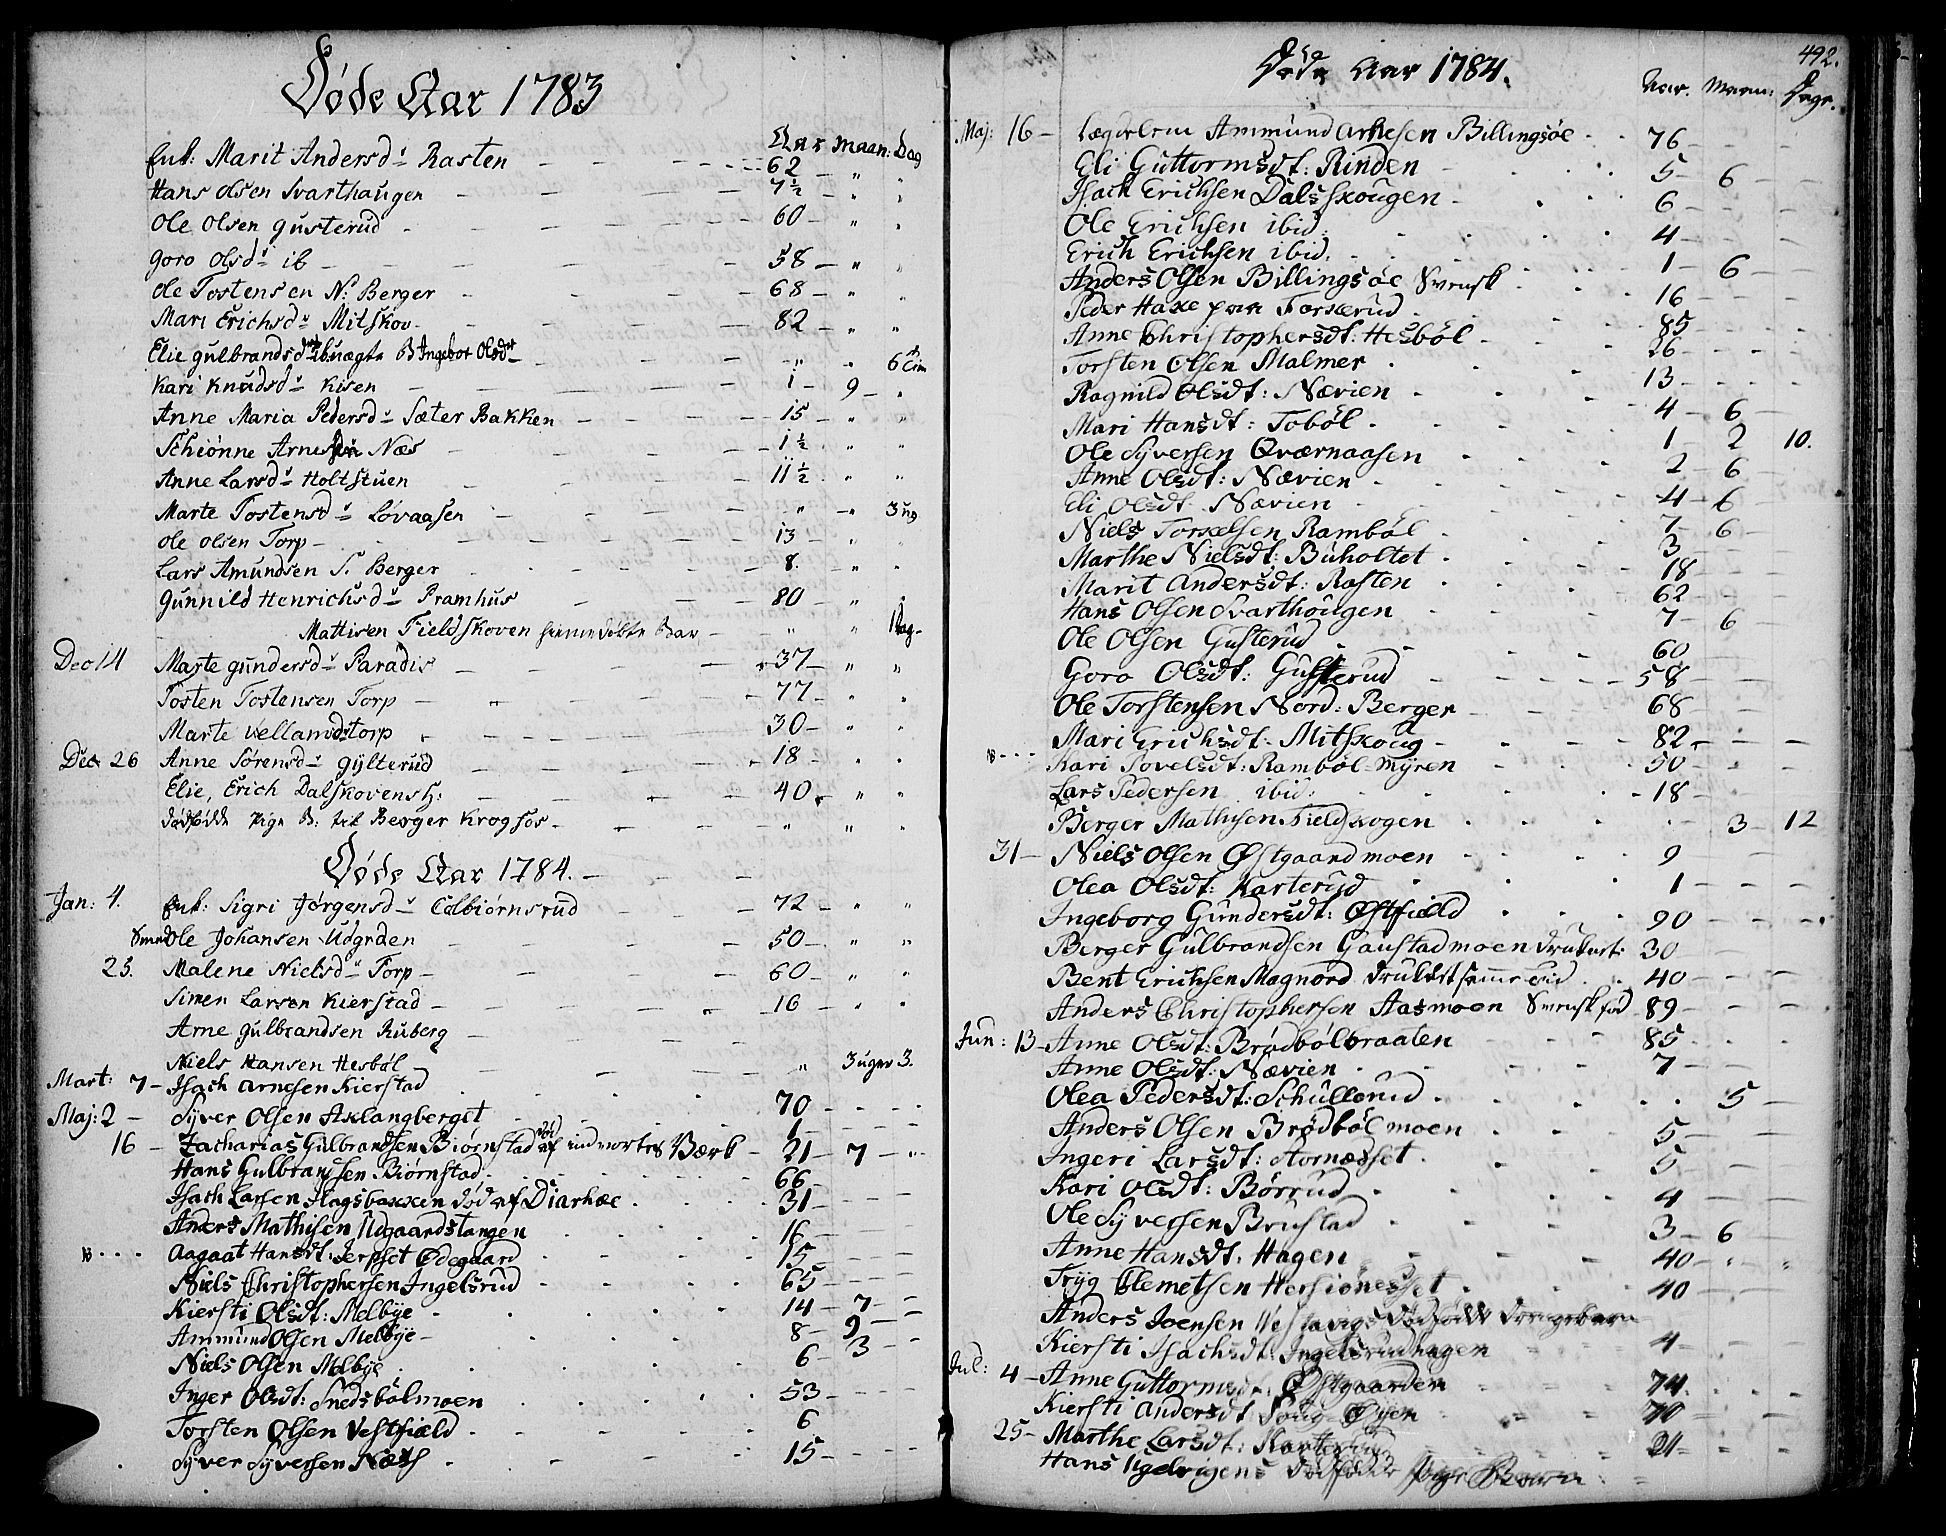 Døde Aar 1783
Aar Maan: Dag
Enk: Marit Andersd: Rasten 62 " "
Hans Olsen Svarthaugen 7½ " "
Ole Olsen Gusterud 60 " "
Goro Olsd: ib 58 " "
Ole Tostensen N: Berger 68 " "
Mari Erichsd: Mitskov 82 " "
Elie Gulbrandsd: uægte B Ingebor Olsd " " 6
Kari Knudsd: Kisen 1 9 "
Anne Maria Pedersd: Sæter Bakken 15 " "
Schiønne Arnes Næs 1½ " "
Anne Larsd: Holtstuen 11½ " "
Marte Tostensd: Løvaasen " " 3 ug
Ole Olsen Torp 13 " "
Lars Amundsen S. Berger 8 " "
Gunnild Henrichsd: Pramhus 80 " "
Mattisen Fieldskoven hiemedøbte Bar " " 1 Dag
Dec 14 Marte Gundersd: Paradis 37 " "
Tosten Tostensen Torp 77 " "
Marte Vellamsd: torp 30 " "
Dec 26 Anne Sørensd: Gylterud 18 " "
Elie, Erich Dalskovens H: 40 " "
dødfødde Pige B: til Berger Krogfos " " "
Døde Aar 1784.
Jan: 4. Enk: Sigri Jørgensd: Colbiørnsrud 72 " "
Ole Johansen Udgrden 50 " "
25. Malene Nielsd: Torp 60 " "
Simen Larsen Kierstad 16 " "
Arne Gulbrandsen Ruberg
Niels Hansen Hesbøl " 3 uger 3.
Mart: 7 Isach Arnesen Kierstad 70
Maj: 2 Syver Olsen Aklangberget 1
16 Zacharias Gulbrandsen Biørnstad død af indvortes Værk 21 7 "
Hans Gulbrandsen Biørnstad 66
Isach Larsen Hagsbakken død af Diarhæe 31
Anders Mathisen Udgaardstangen 16
Aagaat Hansdt: Jerpset Ødegaard 15
Niels Christophersen Ingelsrud 65
Kiersti Olsdt: Melbye 14 7
Ammund Olsen Melbye 8 9
Niels Olsen Melbye 6 3
Inger Olsdt: Snedsbølmoen 53
Torsten Olsen Vestfield 6
Syver Syversen Næss 15
492.
Døde Aar 1784.
Aar. Maan: Dage.
Maj: 16 Lægdelem Ammund Arnesen Billingsøe 76
Eli Guttormsdt: Rinden 5 6
Isach Erichsen Dalsskougen 6
Ole Erichsen ibid: 4
Erich Erichsen ibid. 1 6
Anders Olsen Billingsøe Svensk 16
Peder Haxe paa Forserud 85
Anne Christophersdt: Hesbøl 26
Torsten Olsen Malmer 13
Ragnild Olsdt: Nævien 4 6
Mari Hansdt: Tobøl 1 2 10.
Ole Syversen Qværnaasen 2 6
Anne Olsdt: Nævien 4 6
Eli Olsdt. Nævien 7 6
Niels Torkelsen Rambøl 3
Marthe Nielsdt: Buholtet 18
Marit Andersdt: Rasten 62
Hans Olsen Svarthougen 7 6
Ole Olsen Gusterud 60
Goro Olsdt: Gusterud 58
Ole Torstensen Nord: Berger 68
Mari Erichsdt: Mitskoug 82
Kari Povelsdt: Rambøl-Myren 50
Lars Pedersen ibid: 18
Berger Mathisen Fieldskogen 3 12
31 Niels Olsen Østgaardmoen 9
Olea Olsdt: Karterud 1
Ingeborg Gundersdt: Østfield 90
Berger Gulbrandsen Gaustadmoen druknet 30
Bent Erichsen Magnord druknet samme tid 40
Anders Christophersen Aasmoen Svensk fød 89
Jun: 13 Anne Olsdt: Brødbølbraaten 85
Anne Olsdt: Nævien 7
Olea Pedersdt: Schullerud 5
Anders Olsen Brødbølmoen 5
Ingeri Larsdt: Aornædset 5
Kari Olsdt: Børrud 4
Ole Syversen Brustad 3 6
Anne Hansdt: Hagen 40
Tryg Clemetsen Hersiønesset 40
Anders Joensen dødfødde drengebarn
Kiersti Isachsdt: Ingelsrudhagen 4
Jul: 4 Anne Guttormsdt: Østgaarden 74
Kiersti Andersdt Øyen 70
25 Marthe Larsdt: Karterud 21
Hans dødfødde Pige Barn